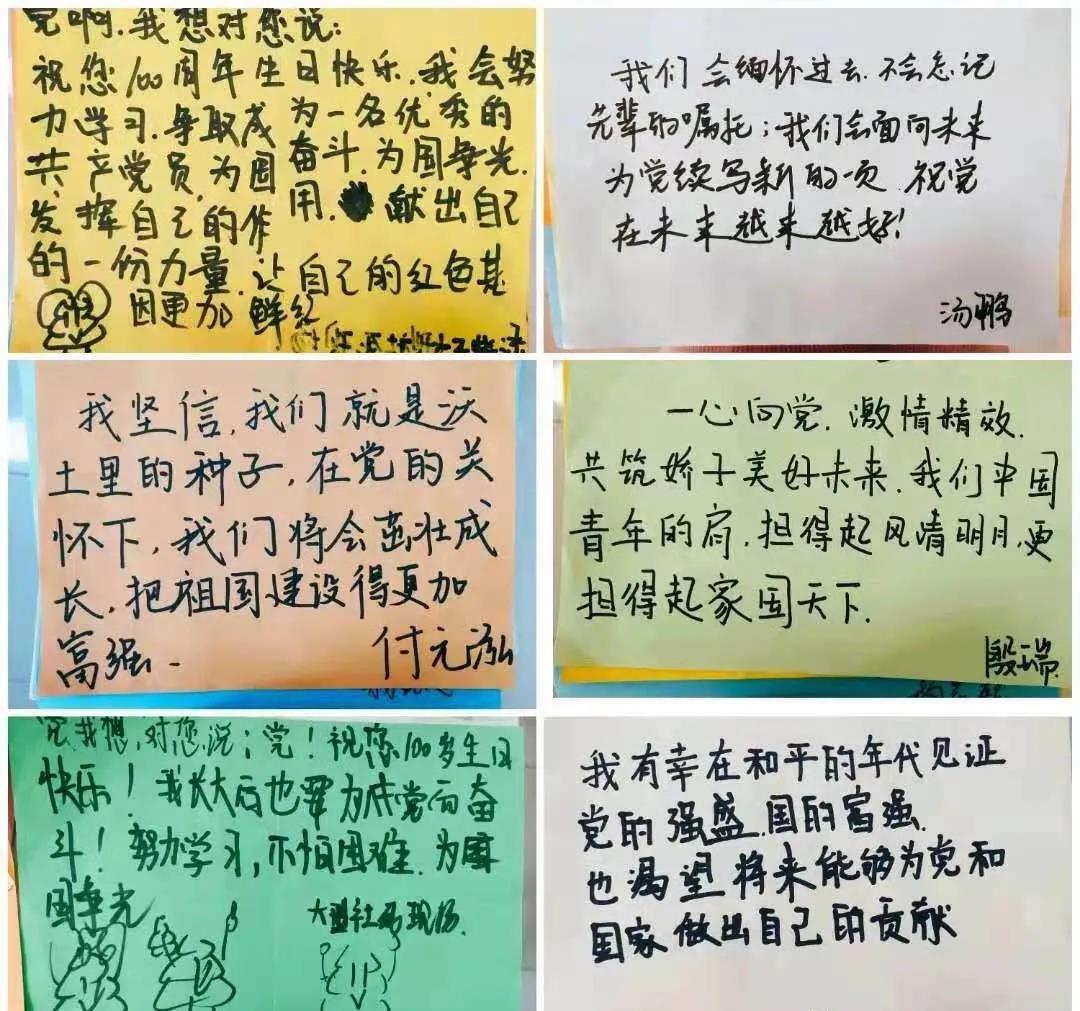 党啊,我想对您说:
祝您100周年生日快乐,我会努
力学习,争取成为一名优秀的
共产党员,为国奋斗,为国争光.
发挥自己的作用.献出自己
的一份力量,让自己的红色基
因更加鲜红
我们会缅怀过去,不会忘记
先辈的嘱托;我们会面向未来
为党续写新的一页,祝党
在未来越来越好!
汤鹏
我坚信,我们就是沃
土里的种子,在党的关
怀下,我们将会茁壮成
长,把祖国建设得更加
富强.
付元泓
一心向党,激情精效,
共筑娇子美好未来,我们中国
青年的肩,担得起风清明月,更
担得起家国天下.
殷瑞
党我想对您说:党!祝您100岁生日
快乐!我长大后也要为党而奋
斗!努力学习,不怕困难.为国
国争光
大型社死现场.
我有幸在和平的年代见证
党的强盛.国的富强.
也渴望将来能够为党和
国家做出自己的贡献